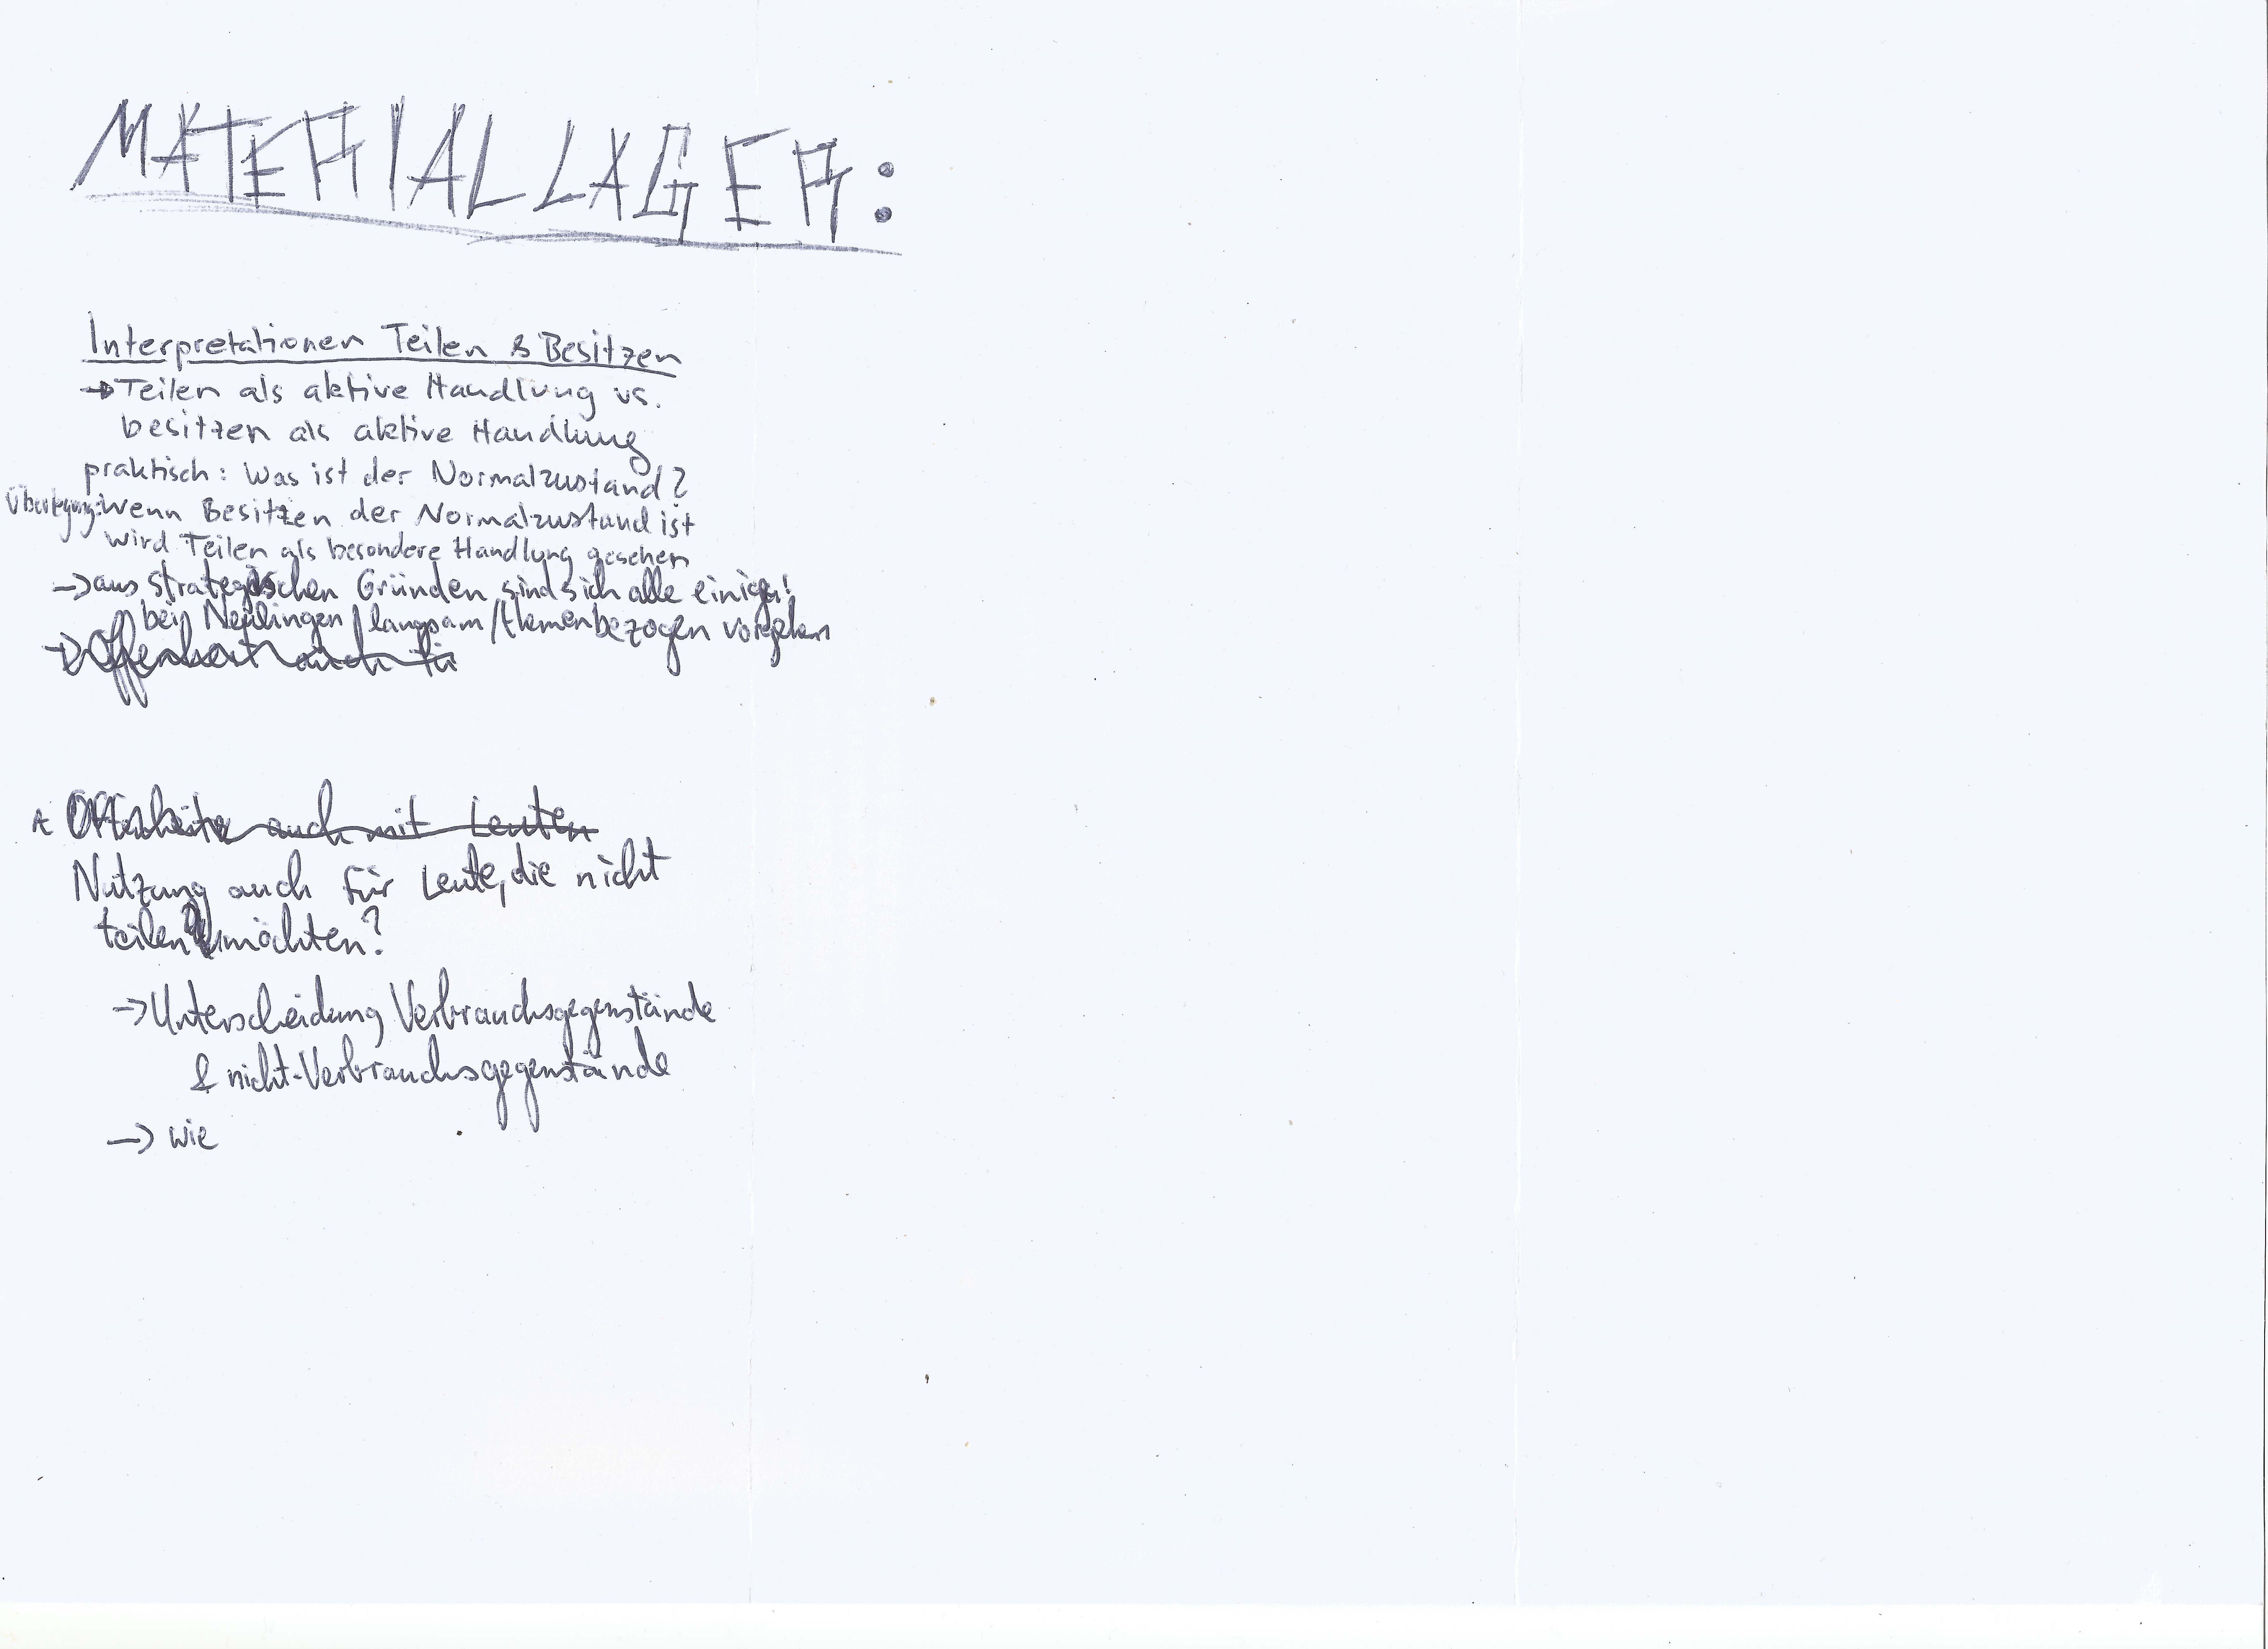 MATERIALLAGER:
Interpretationen Teilen & Besitzen
→ Teilen als aktive Handlung vs.
besitzen als aktive Handlung
praktisch: Was ist der Normalzustand?
Überlegung: Wenn Besitzen der Normalzustand ist
wird Teilen als besondere Handlung gesehen
→ aus strategischen Gründen sind sich alle einig!
bei Neulingen langsam/themenbezogen vorgehen
→ Offenheit auch für
auch mit Leuten
Nutzung auch für Leute, die nicht
teilen möchten?
→ Unterscheidung Verbrauchsgegenstände
& nicht-Verbrauchsgegenstände
→ wie